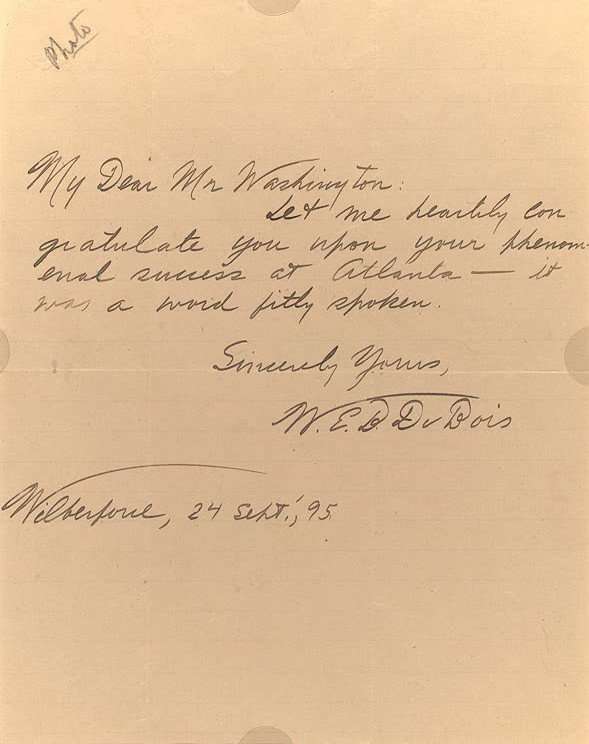 Photo
My Dear Mr Washington:
Let me heartily con
gratulate you upon your phenom-
enal success at Atlanta — it
was a word fitly spoken.
Sincerely Yours,
W.E.B. Du Bois
Wilberforce, 24 Sept., '95